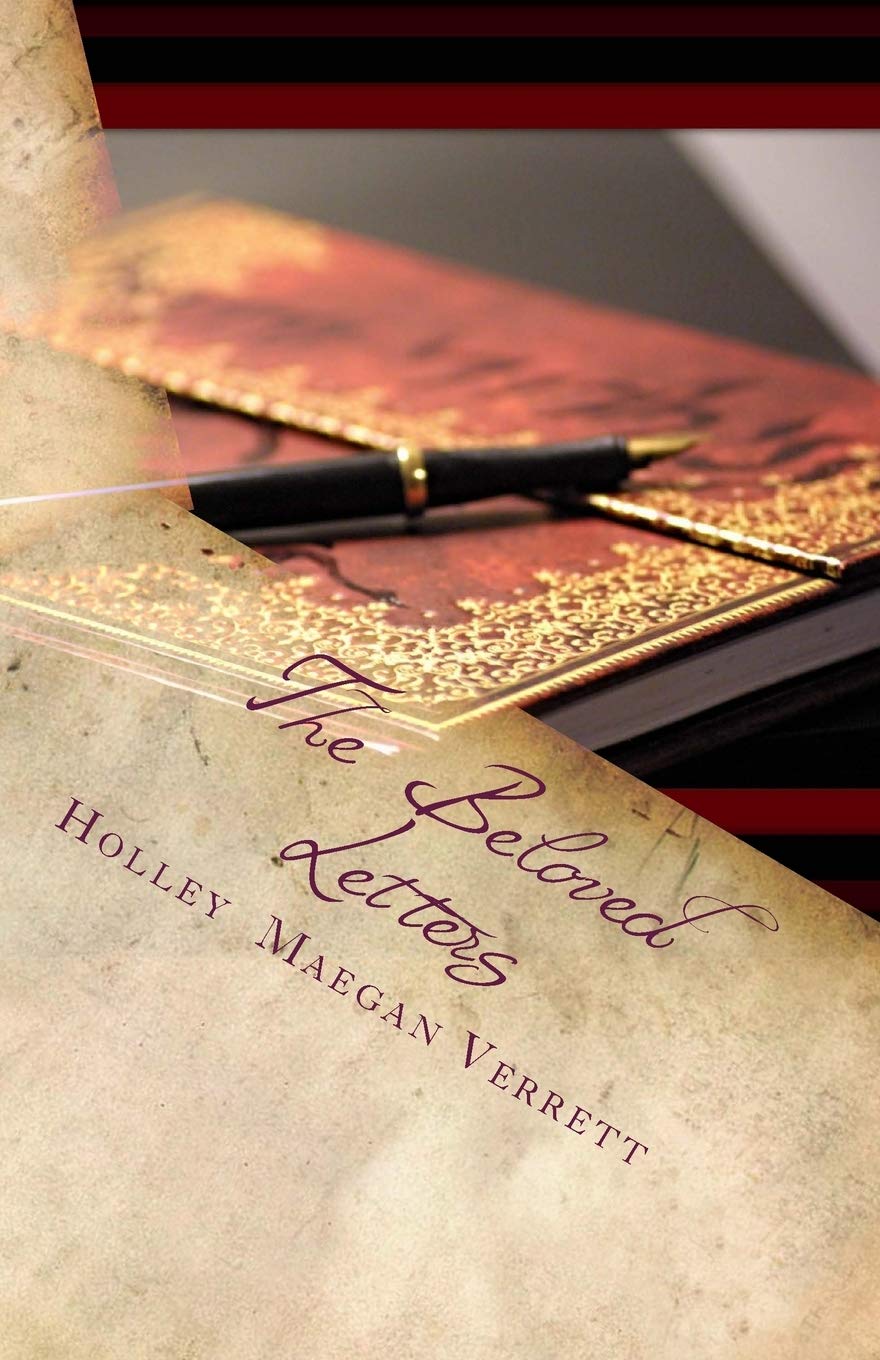 The Beloved
Letters
HOLLEY MAEGAN VERRETT